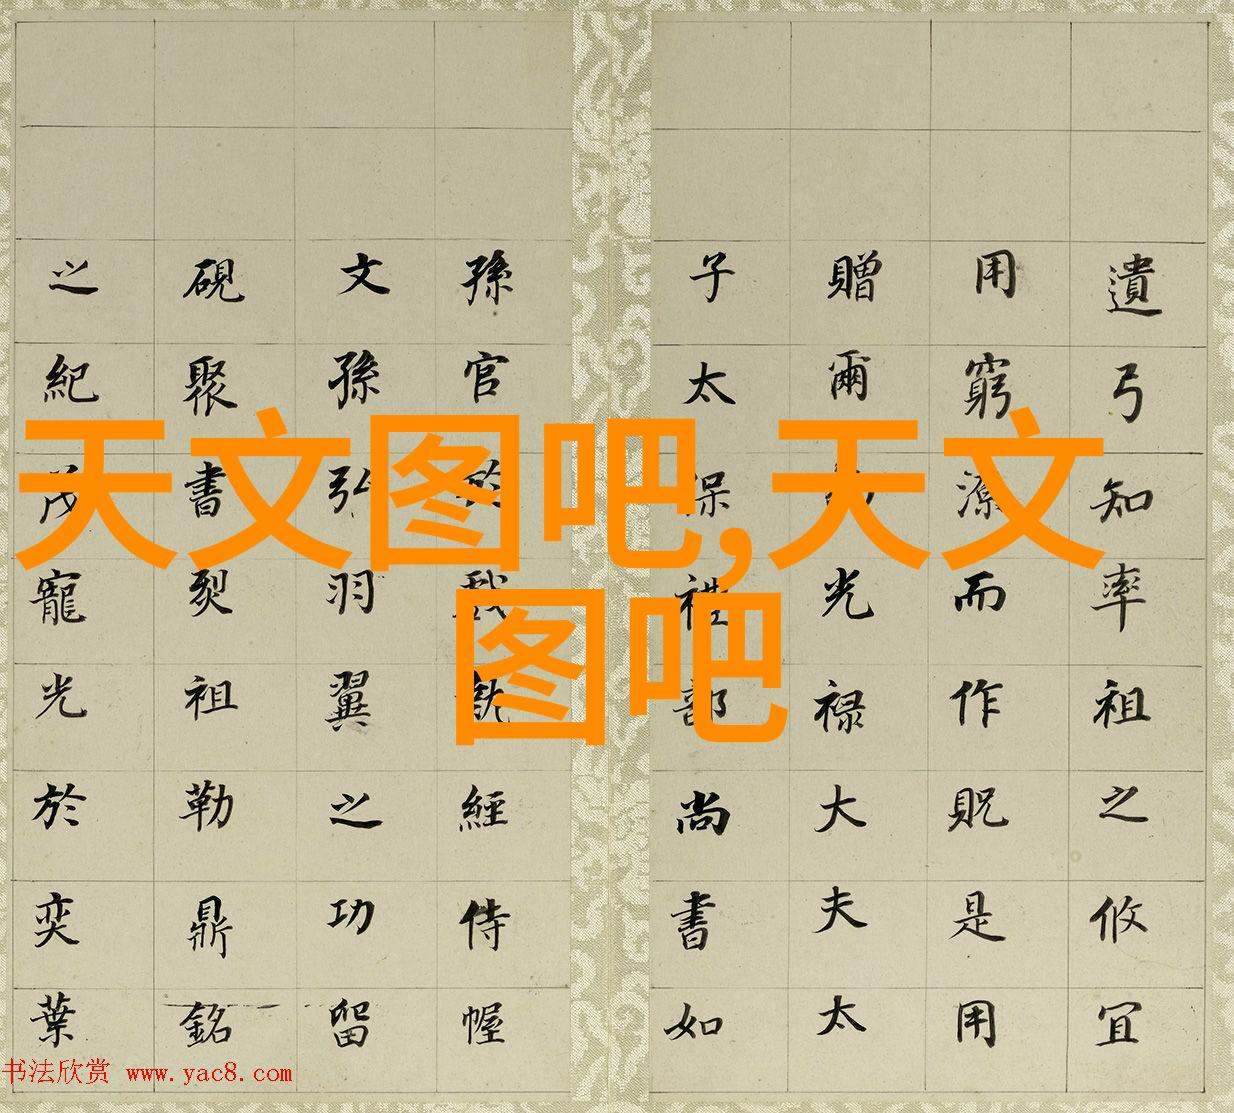 遺弓知率祖之攸宜
用窮而作貺是用
贈爾光禄大夫太
子太保禮部尚書如
孫官於我執經侍幄
文孫弘羽翼之功留
硯聚書裂祖勒鼎銘
之紀茂寵光於奕葉
天文图吧,天文
图吧
书法欣赏 www.yac8.com